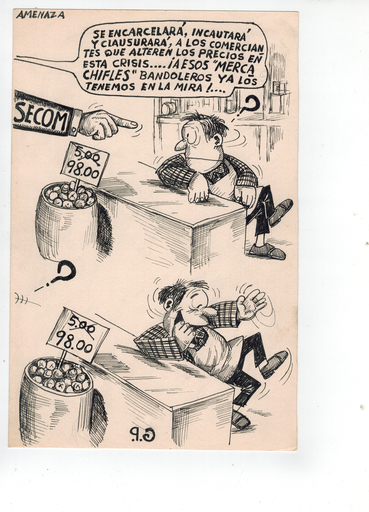 AMENAZA
SE ENCARCELARÁ, INCAUTARÁ
Y CLAUSURARÁ, A LOS COMERCIAN
TES QUE ALTEREN LOS PRECIOS EN
ESTA CRISIS....¡A ESOS "MERCA
CHIFLES" BANDOLEROS YA LOS
TENEMOS EN LA MIRA!....
?
SECOM
5,00
98.00
?
5,00
98.00
G.P.